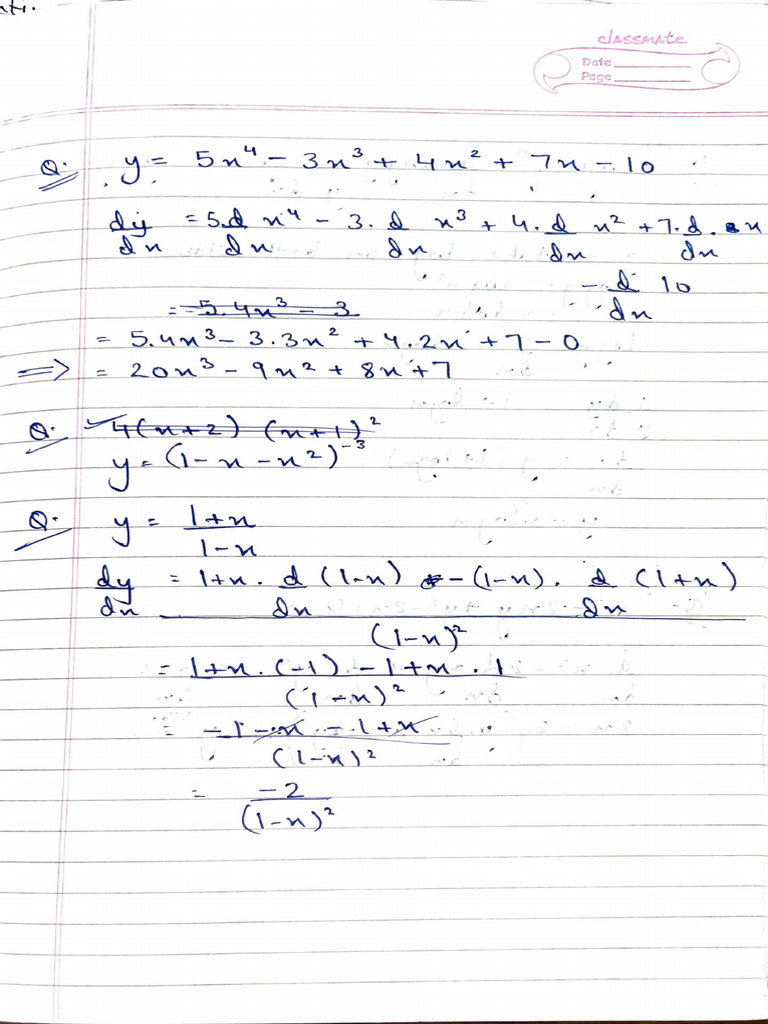 classmate
Date
Page
Q. y = 5x⁴ - 3x³ + 4x² + 7x - 10
dy/dx = 5.d/dx x⁴ - 3.d/dx x³ + 4.d/dx x² + 7.d/dx.x
- d/dx 10
= 5.4x³ - 3
= 5.4x³ - 3.3x² + 4.2x + 7 - 0
⇒ = 20x³ - 9x² + 8x + 7
Q. 4(x+2) (x+1)²
y = (1-x-x²)⁻³
Q. y = 1+x/1-x
dy/dx = 1+x. d/dx (1-x) - (1-x). d/dx (1+x)
(1-x)²
= 1+x.(-1) - 1+x.1
(1-x)²
= -1-x -1+x
(1-x)²
= -2
(1-x)²